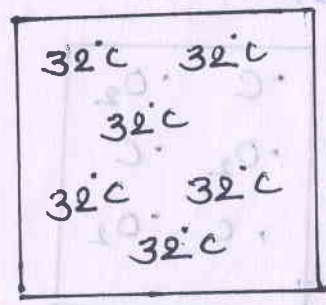 32°C 32°C
32°C
32°C 32°C
32°C